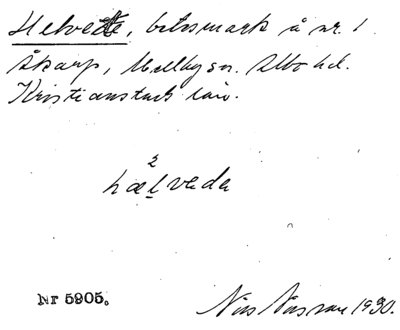 Helvete, betesmark å nr. 1
Skarp, Mellby sn. Albo hd.
Kristianstads län.
2
hælveda
Nr 5905.
Nils 1930.